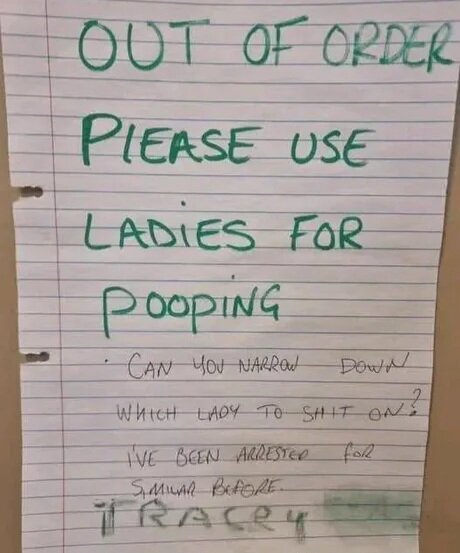 OUT OF ORDER
PLEASE USE
LADIES FOR
POOPING
CAN YOU NARROW DOWN
WHICH LADY TO SHIT ON?
I'VE BEEN ARRESTED FOR
SIMILAR BEFORE.
TRACEY